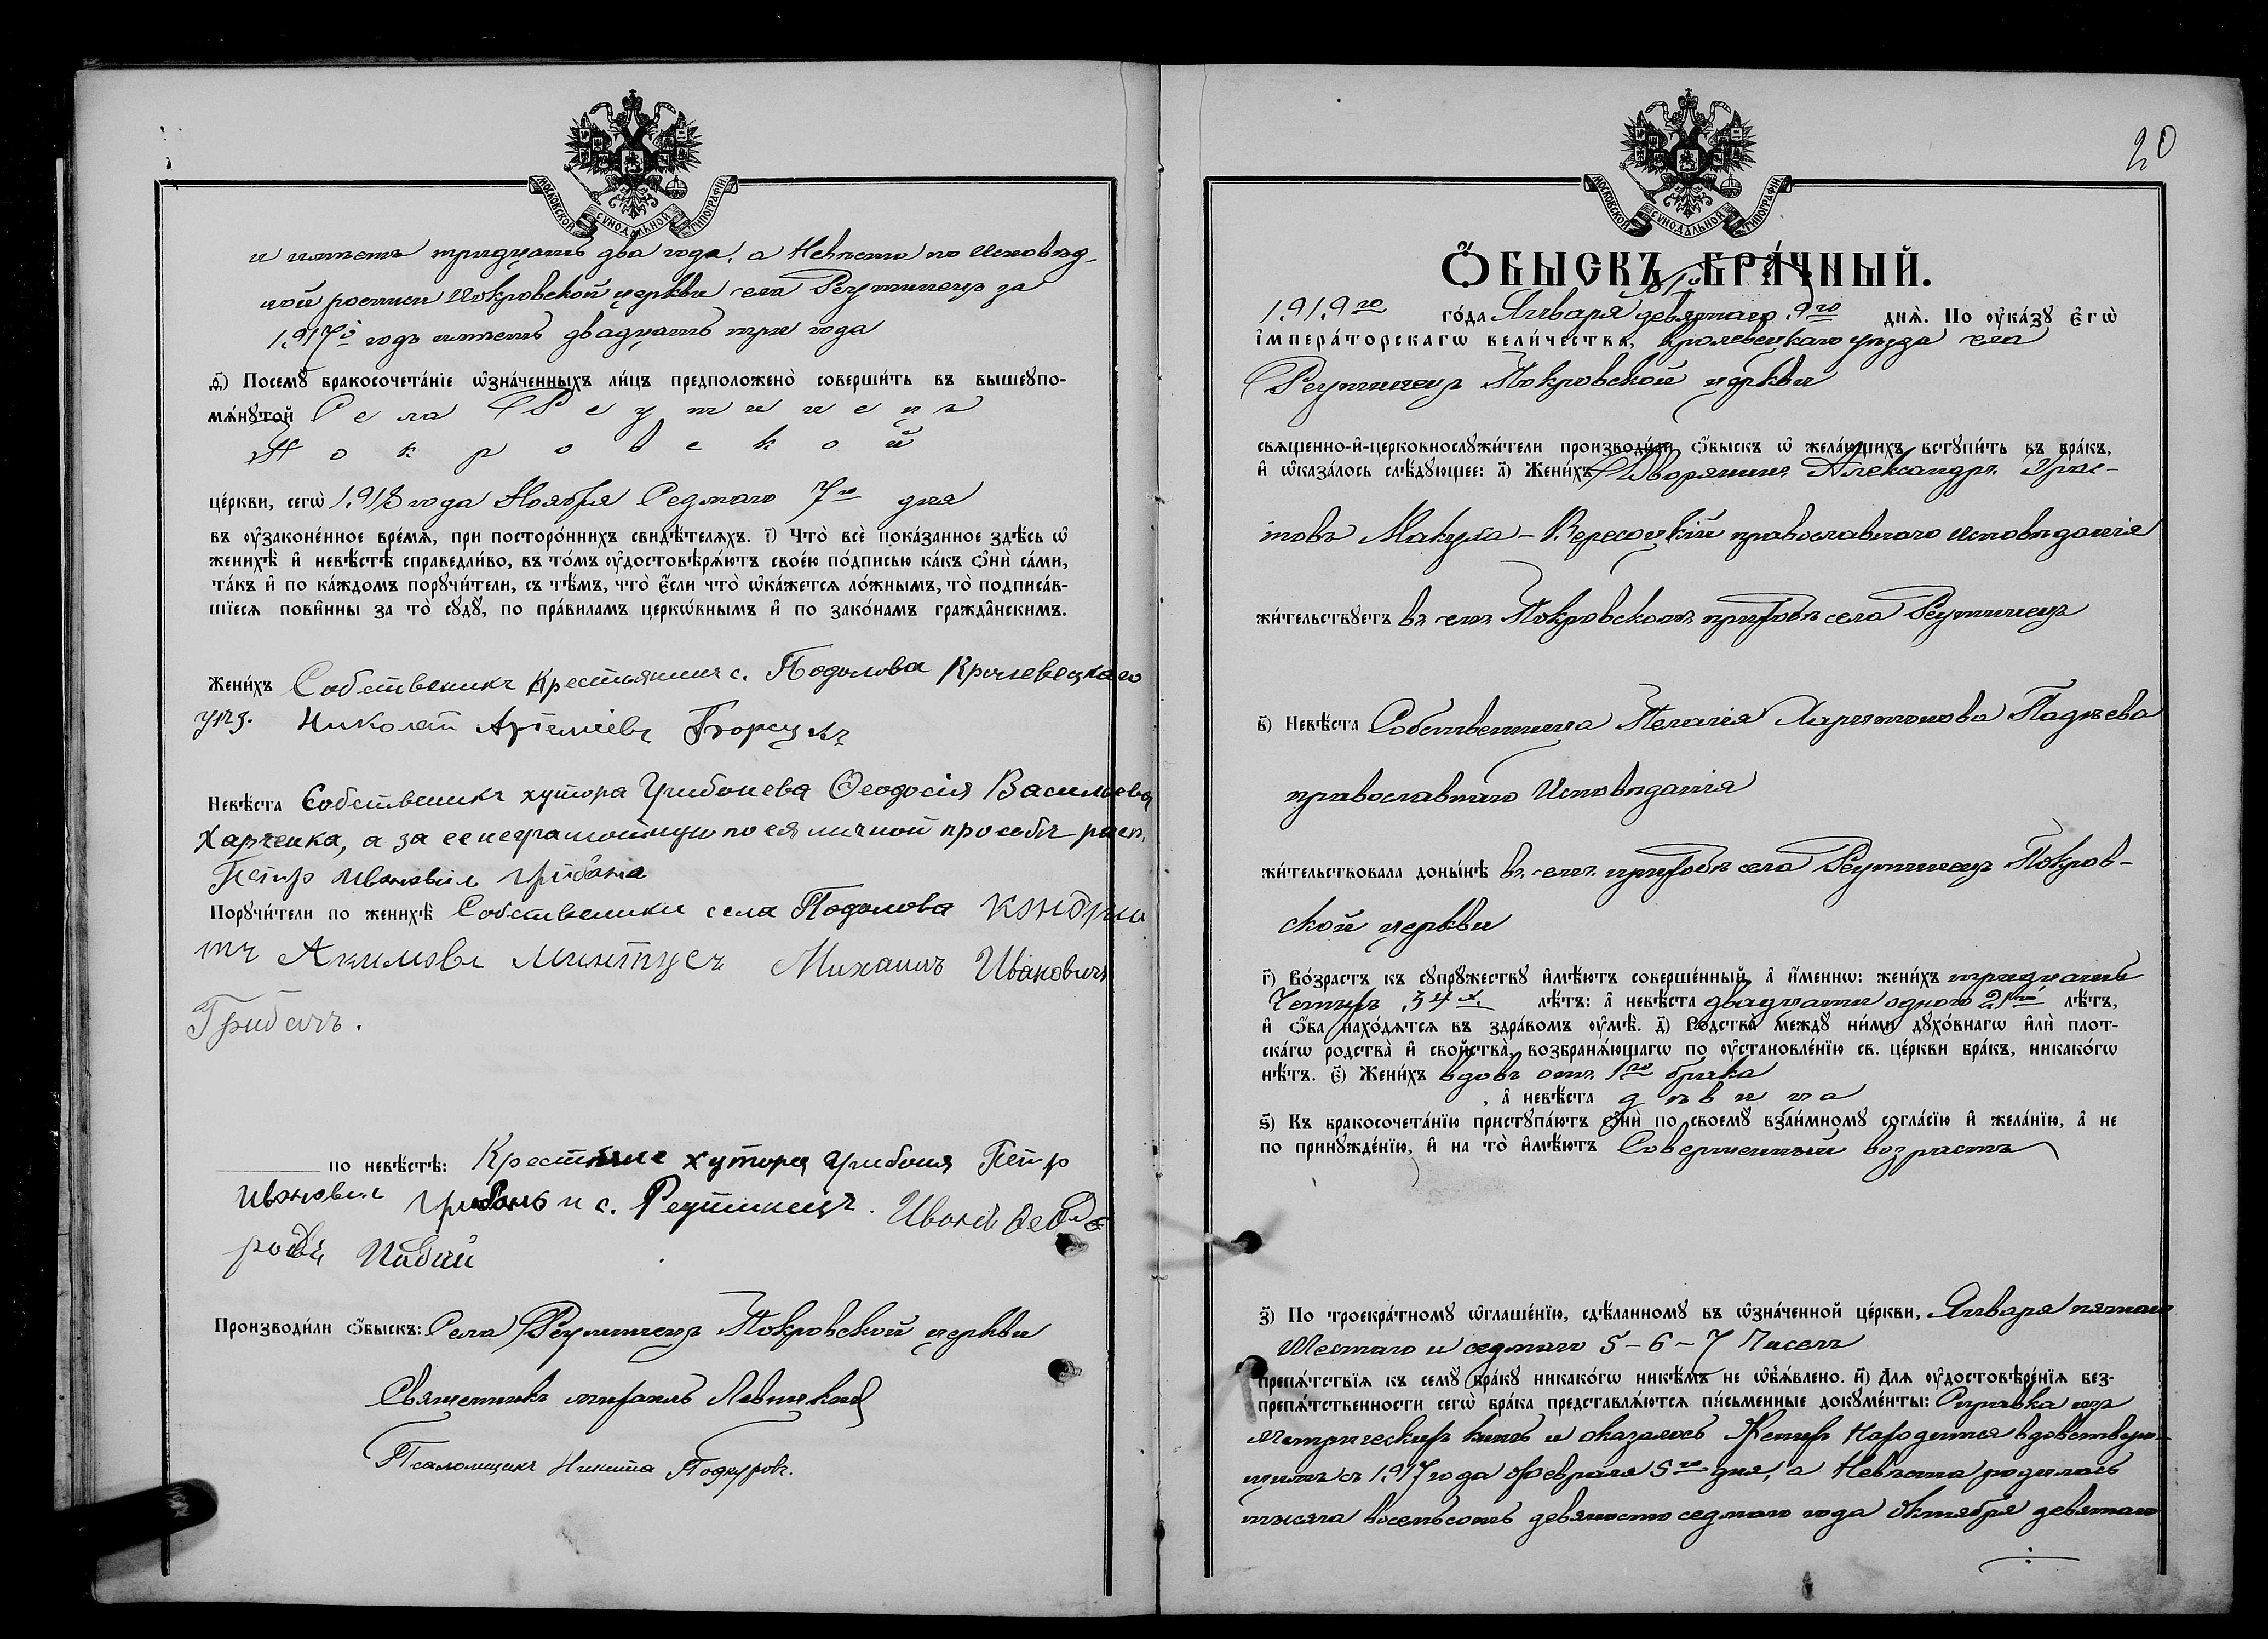 МОСКОВСКОЙ СѴНОДАЛЬНОЙ ТИПОГРАФІИ
и имѣетъ тридцать два года, а Невѣста по Исповѣд-
ной росписи Покровской церкви села Реутинецъ за
1917й годъ имѣетъ двадцать три года
д҃) Посемꙋ бракосочета́ніе ѡ҆зна́ченныхъ ли́цъ предположено̀ соверши́ть въ вышеупо-
мѧ́нꙋтой Села Реутинецъ
Покровской
це́ркви, сегѡ̀ 1918 года Ноября Седмаго 7го дня
въ оу҆законе́нное вре́мѧ, при посторо́ннихъ свидѣ́телѧхъ. і҃) Что̀ всѐ пока́занное здѣ́сь ѡ҆
женихѣ̀ и҆ невѣ́стѣ справедли́во, въ то́мъ оу҆достовѣрѧ́ютъ свое́ю по́дписью ка́къ ѻ҆нѝ са́ми,
та́къ и҆ по ка́ждомъ порꙋчи́тели, съ тѣ́мъ, что̀ є҆́сли что̀ ѡ҆ка́жетсѧ ло́жнымъ, то̀ подписа́в-
шіесѧ пови́нны за то̀ сꙋдꙋ̀, по пра́виламъ церко́внымъ и҆ по зако́намъ гражда́нскимъ.
Жени́хъ Собственикъ Крестьянинъ с. Подолова Кролевецкаго
уѣз. Николай Артеміевъ Борсукъ
Невѣ́ста Собственикъ хутора Грибонева Ѳеодосія Васильева
Харченка, а за ее неграмотную по ея личной просьбѣ расп.
Петръ Ивановъ Грибана
Порꙋчи́тели по женихѣ̀ Собственики села Подолова Кондра
тъ Акимовъ Михаилъ Ивановичъ
Грибачъ.
по невѣ́стѣ: Крестьяне хутора Грибоня Петръ
Ивановъ Грибань и с. Реутинецъ. Иванъ Ѳеодо
ровъ
Производи́ли ѻ҆́быскъ: Села Реутинецъ Покровской церкви
Священикъ Михаилъ Левицкій
Псаломщикъ Никита
20
МОСКОВСКОЙ СѴНОДАЛЬНОЙ ТИПОГРАФІИ
Ѻ҆́БЫСКЪ БРА́ЧНЫЙ.
1919го го́да Января девятаго 9го днѧ̀. По оу҆ка́зꙋ є҆гѡ̀
і҆мпера́торскагѡ вели́чества, Кролевецкаго уѣзда села
Реутинецъ Покровской церкви
свѧще́нно-и҆-церковнослꙋжи́тели производи́ли ѻ҆́быскъ ѡ҆ жела́ющихъ встꙋпи́ть въ бра́къ,
и҆ ѡ҆каза́лось слѣ́дꙋющее: а҃) Жени́хъ Дворянинъ Александръ
Макуха-Вересоцкій православнаго исповѣданія
жи́тельствꙋетъ въ селѣ Покровскомъ приходѣ села Реутинецъ
в҃) Невѣ́ста Собственица Пелагія Харитонова Паднева
православнаго Исповѣданія
жи́тельствовала доны́нѣ въ селѣ приходѣ села Реутинецъ Покров-
ской церкви
г҃) Во́зрастъ къ сꙋпрꙋ́жествꙋ и҆мѣ́ютъ соверше́нный, а҆ и҆́менно: жени́хъ тридцать
Четыре 34х лѣ́тъ: а҆ невѣ́ста двадцати одного 21го лѣ́тъ,
и҆ ѻ҆́ба нахо́дѧтсѧ въ здра́вомъ оу҆мѣ̀. д҃) Ро́дства мє́ждꙋ ни́ми дꙋхо́внагѡ и҆лѝ плот-
ска́гѡ родства̀ и҆ свойства̀, возбранѧ́ющагѡ по оу҆становле́нію св. це́ркви бра́къ, никако́гѡ
нѣ́тъ. є҃) Жени́хъ вдовъ отъ 1го брака
, а҆ невѣ́ста дѣвица
ѕ҃) Къ бракосочета́нію пристꙋпа́ютъ ѻ҆нѝ по своемꙋ̀ взаи́мномꙋ согла́сію и҆ жела́нію, а҆ не
по принꙋжде́нію, и҆ на то̀ и҆мѣ́ютъ Совершенный возрастъ
з҃) По троекра́тномꙋ ѡ҆глаше́нію, сдѣ́ланномꙋ въ ѡ҆зна́ченной це́ркви, Января пятаго
Шестаго и седмаго 5-6-7 Чиселъ
препѧ́тствіѧ къ семꙋ̀ бра́кꙋ никако́гѡ никѣ́мъ не ѡ҆б̾ѧ́влено. и҃) Длѧ̀ оу҆достовѣре́ніѧ без-
препѧ́тственности сегѡ̀ бра́ка представлѧ́ютсѧ пи́сьменные докꙋме́нты: Справка изъ
метрическихъ книгъ и оказалось Женихъ Находится вдовствую-
щимъ съ 1917 года Февраля 5го дня, а Невѣста родилась
тысяча восемьсотъ девяносто седмаго года Октября девятаго